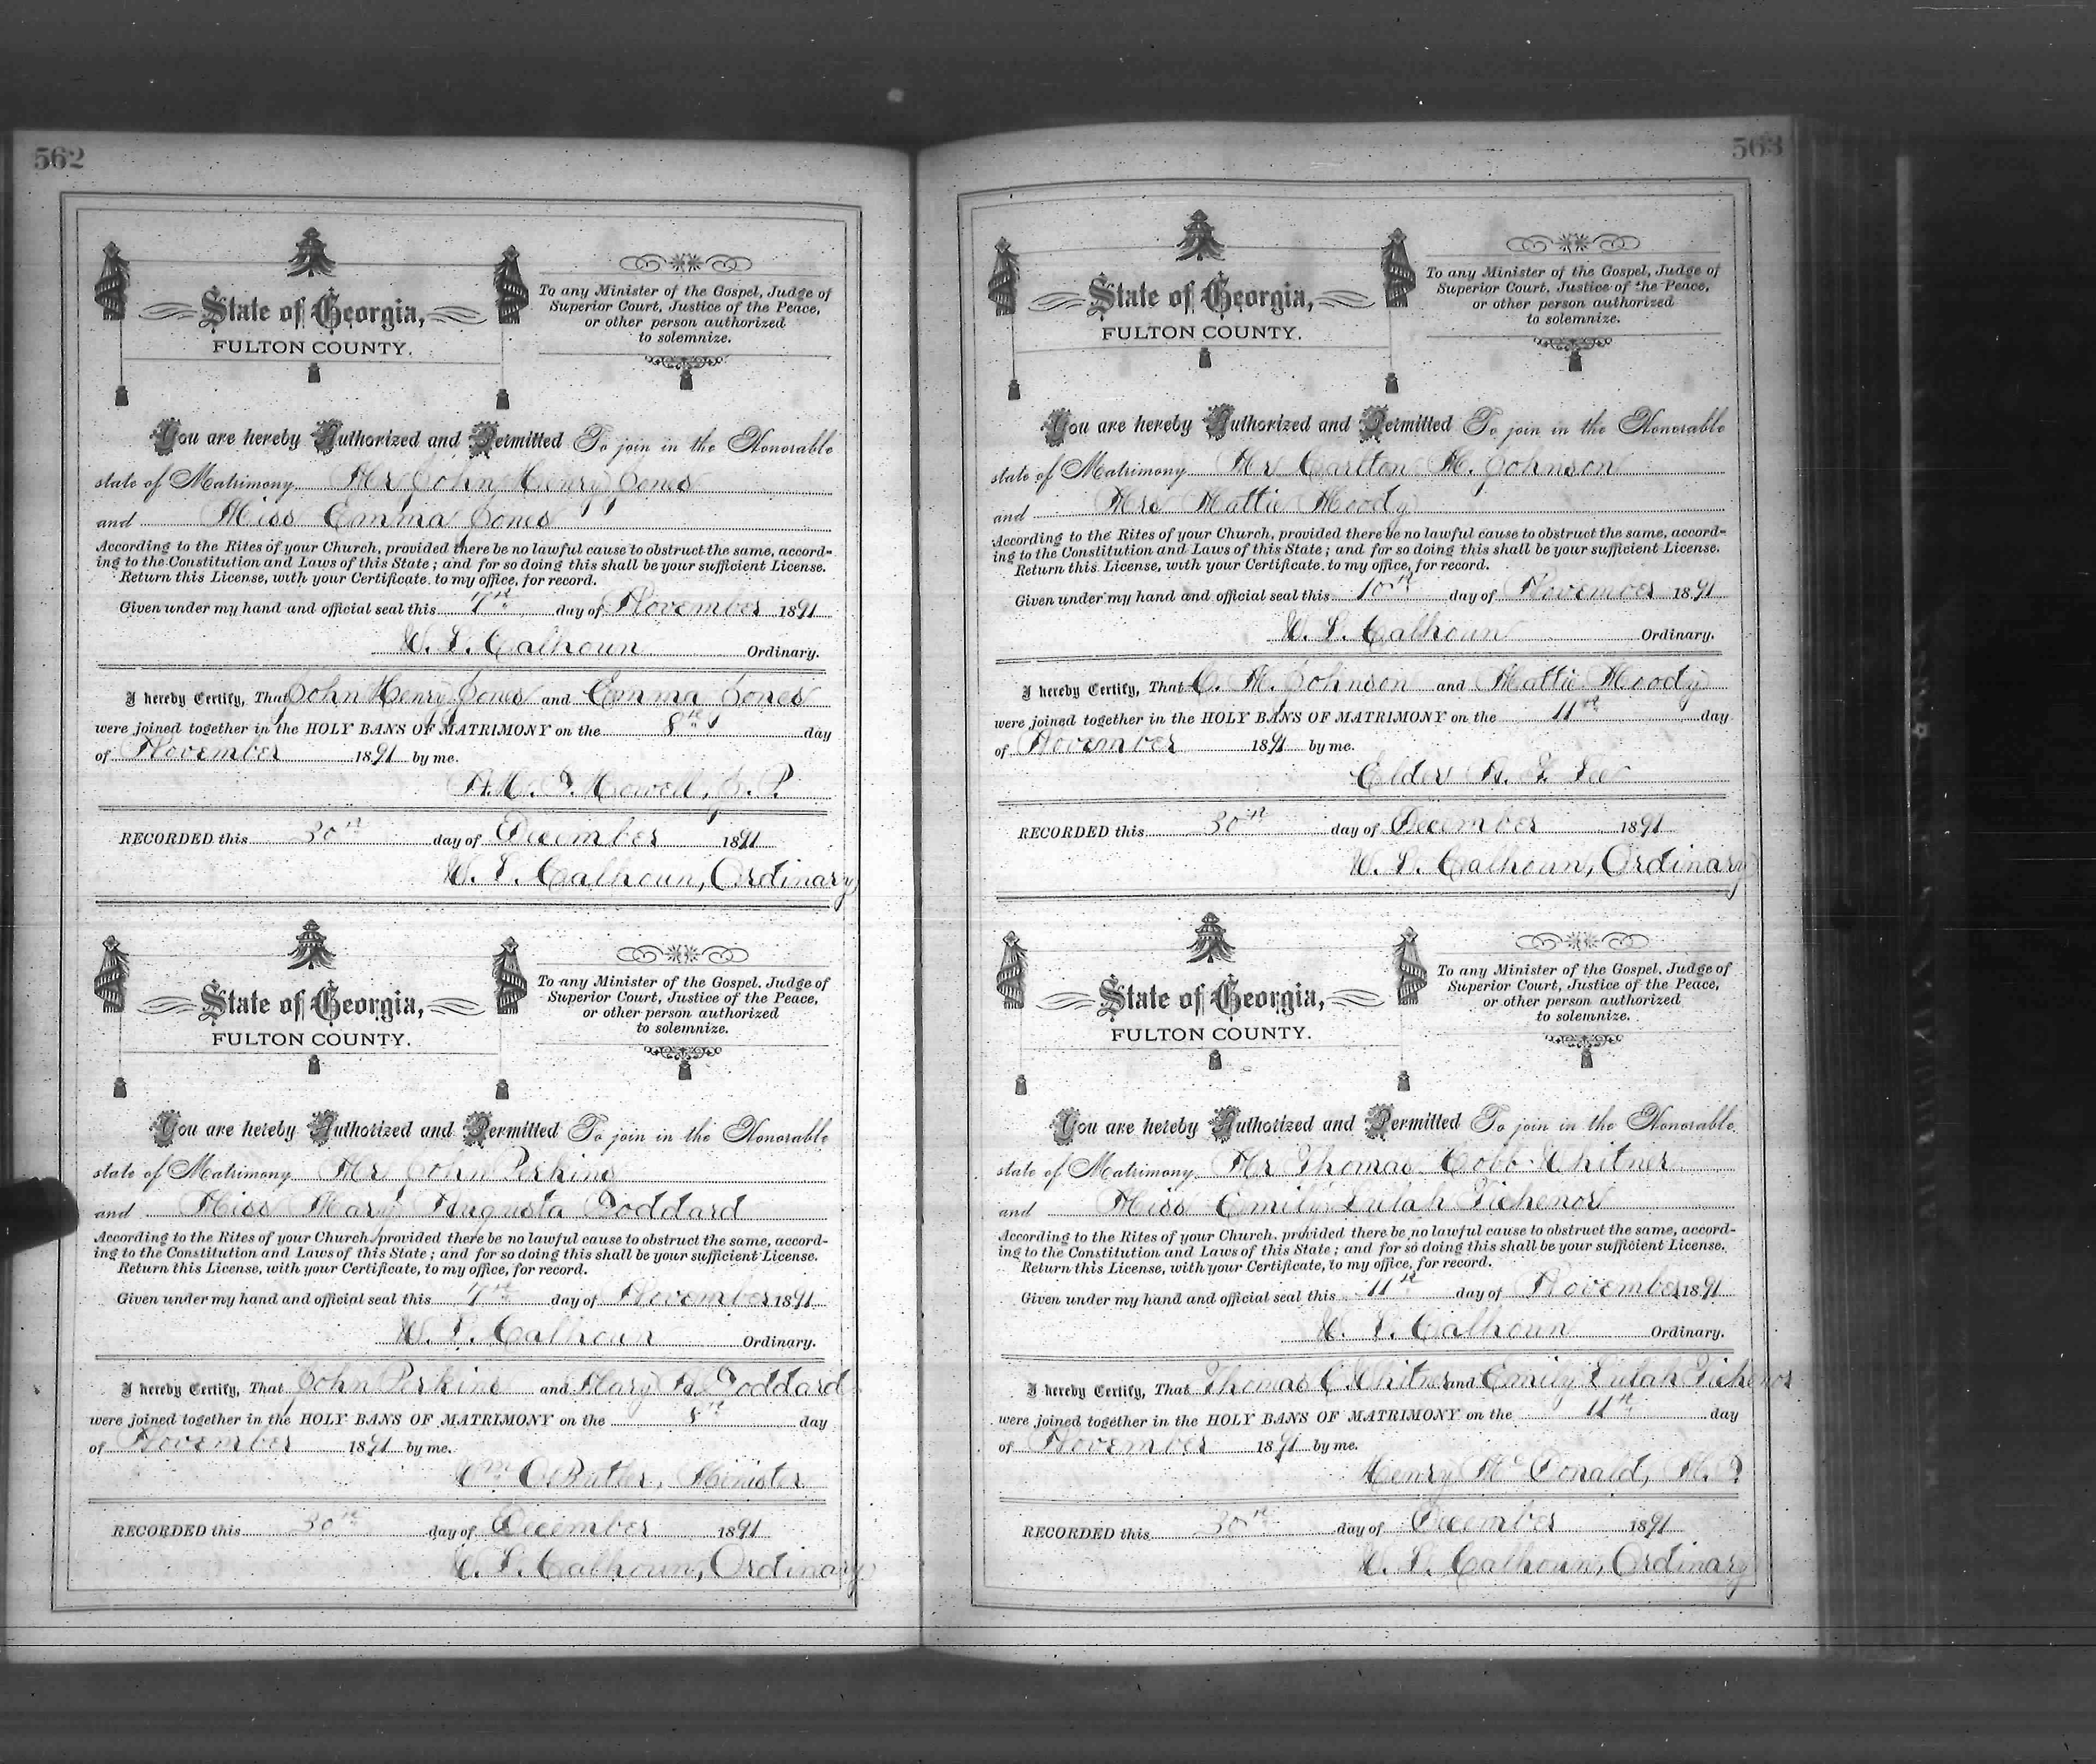 562
State of Georgia,
FULTON COUNTY.
To any Minister of the Gospel, Judge of
Superior Court, Justice of the Peace,
or other person authorized
to solemnize.
You are hereby Authorized and Permitted To join in the Honorable
state of Matrimony Mr John Henry Jones
and Miss Emma Jones
According to the Rites of your Church, provided there be no lawful cause to obstruct the same, accord-
ing to the Constitution and Laws of this State; and for so doing this shall be your sufficient License.
Return this License, with your Certificate, to my office, for record.
Given under my hand and official seal this 7th day of November 1891
W. L. Calhoun Ordinary.
I hereby Certify, That John Henry Jones and Emma Jones
were joined together in the HOLY BANS OF MATRIMONY on the 8th day
of November 1891 by me.
Howell, J. P.
RECORDED this 30th day of December 1891
W. L. Calhoun, Ordinary
State of Georgia,
FULTON COUNTY.
To any Minister of the Gospel, Judge of
Superior Court, Justice of the Peace,
or other person authorized
to solemnize.
You are hereby Authorized and Permitted To join in the Honorable
state of Matrimony Mr John Perkins
and Miss Mary Augusta Goddard
According to the Rites of your Church, provided there be no lawful cause to obstruct the same, accord-
ing to the Constitution and Laws of this State; and for so doing this shall be your sufficient License.
Return this License, with your Certificate, to my office, for record.
Given under my hand and official seal this 7th day of November 1891
W. L. Calhoun Ordinary.
I hereby Certify, That John Perkins and Mary A. Goddard
were joined together in the HOLY BANS OF MATRIMONY on the 8th day
of November 1891 by me.
Wm O. Butler, Minister
RECORDED this 30th day of December 1891
W. L. Calhoun, Ordinary
563
State of Georgia,
FULTON COUNTY.
To any Minister of the Gospel, Judge of
Superior Court, Justice of the Peace,
or other person authorized
to solemnize.
You are hereby Authorized and Permitted To join in the Honorable
state of Matrimony Mr Carlton M. Johnson
and Mrs Mattie Moody
According to the Rites of your Church, provided there be no lawful cause to obstruct the same, accord-
ing to the Constitution and Laws of this State; and for so doing this shall be your sufficient License.
Return this License, with your Certificate, to my office, for record.
Given under my hand and official seal this 10th day of November 1891
W. L. Calhoun Ordinary.
I hereby Certify, That C. M. Johnson and Mattie Moody
were joined together in the HOLY BANS OF MATRIMONY on the 11th day
of November 1891 by me.
Elder Lee
RECORDED this 30th day of December 1891
W. L. Calhoun, Ordinary
State of Georgia,
FULTON COUNTY.
To any Minister of the Gospel, Judge of
Superior Court, Justice of the Peace,
or other person authorized
to solemnize.
You are hereby Authorized and Permitted To join in the Honorable
state of Matrimony Mr Thomas Cobb Whitner
and Miss Emily Lulah Tichenor
According to the Rites of your Church, provided there be no lawful cause to obstruct the same, accord-
ing to the Constitution and Laws of this State; and for so doing this shall be your sufficient License.
Return this License, with your Certificate, to my office, for record.
Given under my hand and official seal this 11th day of November 1891
W. L. Calhoun Ordinary.
I hereby Certify, That Thomas C Whitner and Emily Lulah Tichenor
were joined together in the HOLY BANS OF MATRIMONY on the 11th day
of November 1891 by me.
Henry McDonald,
RECORDED this 30th day of December 1891
W. L. Calhoun, Ordinary